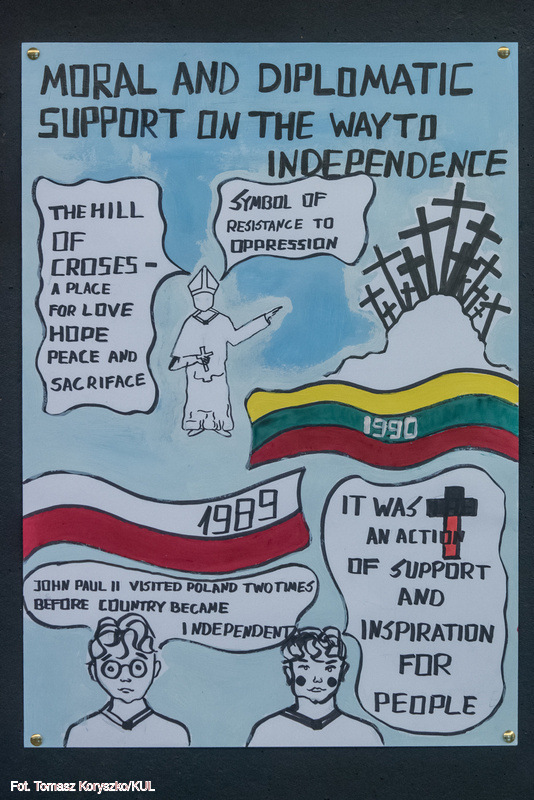 MORAL AND DIPLOMATIC
SUPPORT ON THE WAY TO
INDEPENDENCE
THE HILL
OF
CROSES -
A PLACE
FOR LOVE
HOPE
PEACE AND
SACRIFACE
SYMBOL OF
RESISTANCE TO
OPPRESSION
1990
1989
IT WAS
AN ACTION
OF SUPPORT
AND
INSPIRATION
FOR
PEOPLE
JOHN PAUL II VISITED POLAND TWO TIMES
BEFORE COUNTRY BECAME
INDEPENDENT
Fot. Tomasz Koryszko/KUL